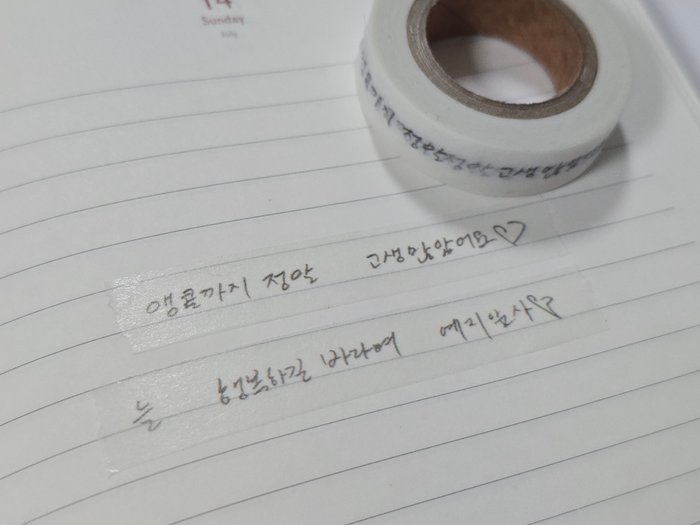 14
Sunday
July
앵콜까지 정말 고생많았어요♡
늘 행복하길 바라며 예리암사♡